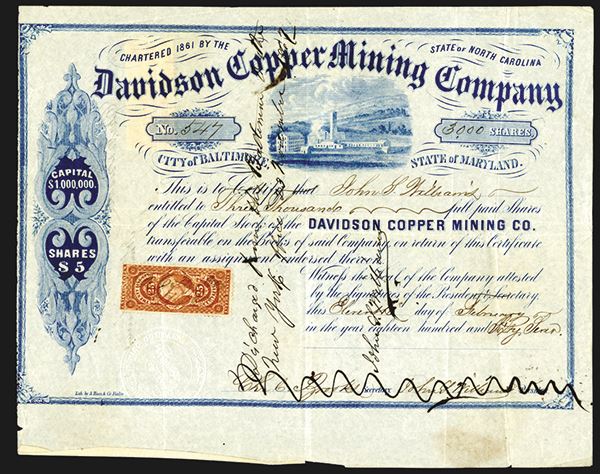 CHARTERED 1861 BY THE STATE OF NORTH CAROLINA
Davidson Copper Mining Company
No. 547 3000 SHARES
CITY OF BALTIMORE STATE OF MARYLAND.
CAPITAL
$1.000,000.
SHARES
$5
This is to Certify that John S. Williams
entitled to Three Thousand full paid Shares
of the Capital Stock of the DAVIDSON COPPER MINING CO.
transferable on the Books of said Company, on return of this Certificate
with an assignment endorsed thereon.
Witness the seal of the Company attested
by the Signatures of the President & Secretary,
this day of February
in the year eighteen hundred and Sixty
25 25
Secretary
New York